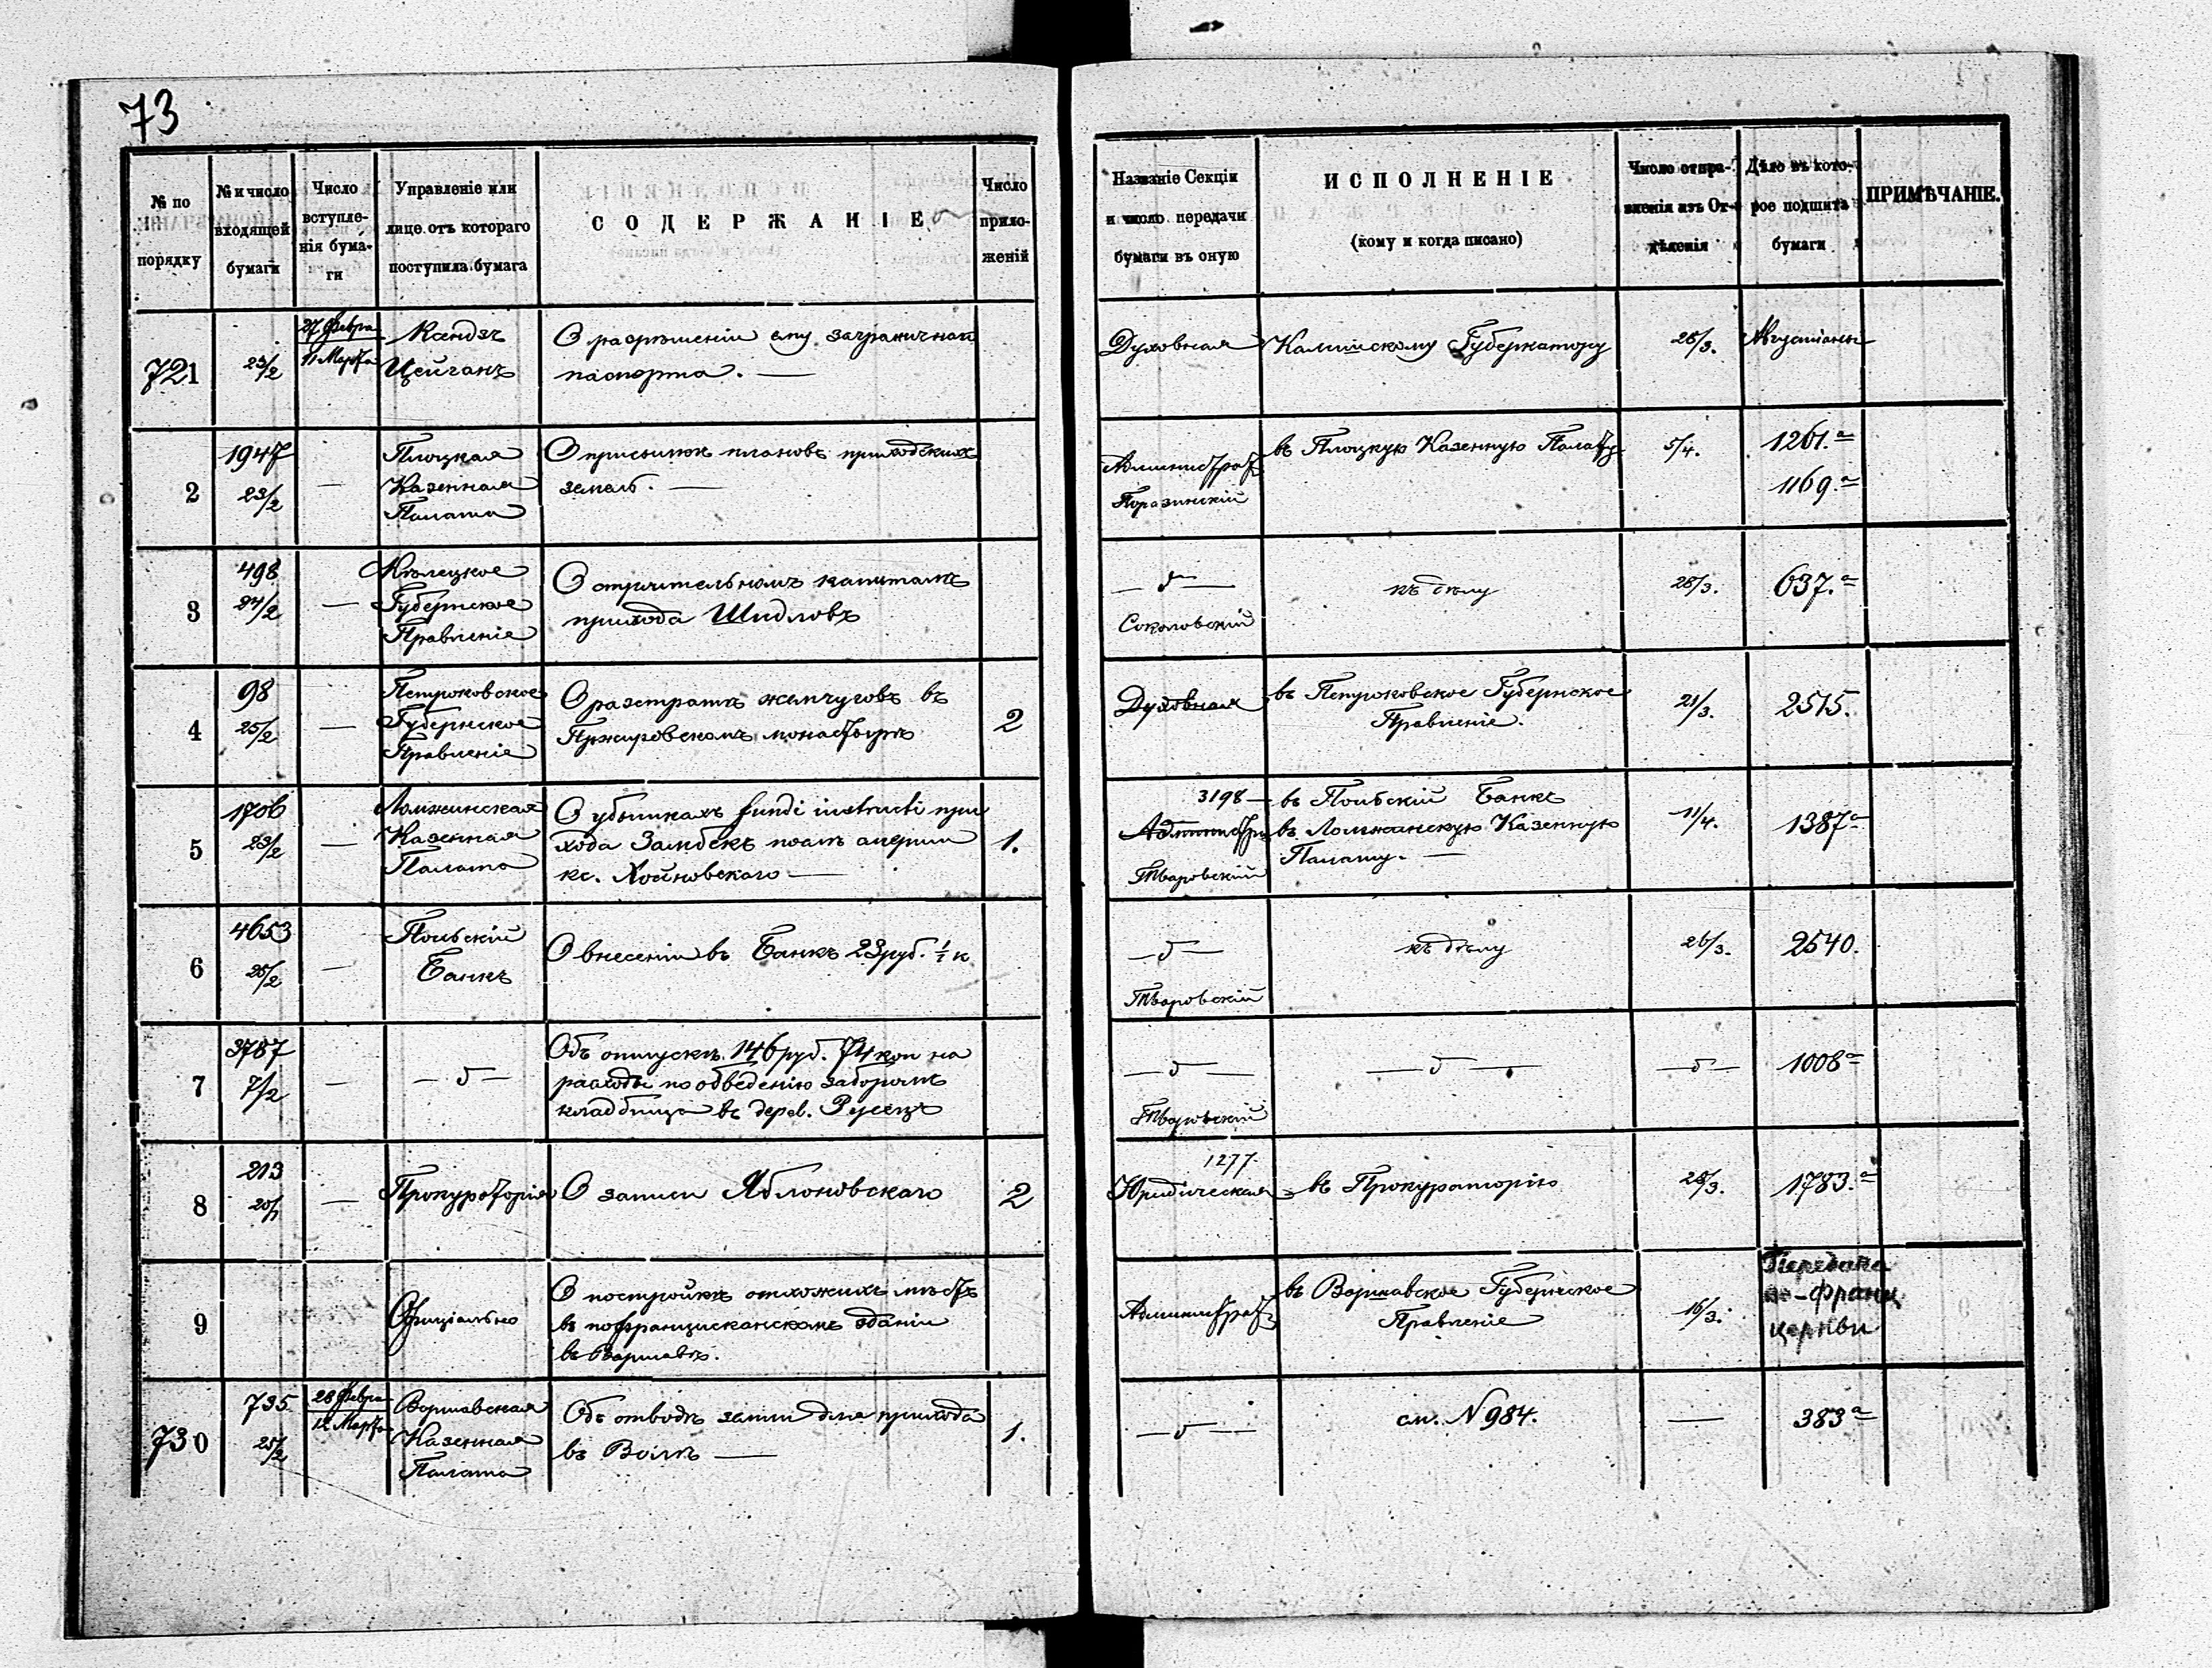 73
№ по порядку
№ и число входящей бумаги
Число вступленія бумаги
Управленіе или лице отъ котораго поступила бумага
СОДЕРЖАНІЕ
Число приложеній
Названіе Секціи и число передачи бумаги въ оную
ИСПОЛНЕНІЕ
(кому и когда писано)
Число отправленія изъ Отдѣленія
Дѣло въ которое подшита бумаги
ПРИМѢЧАНІЕ.
721
23/2
27 Февра
11 Марта
Ксендзъ
Цейганъ
О разрѣшеніи ему заграничнаго
паспорта. —
Духовная
Калишскому Губернатору
28/3.
2
1947
23/2
—
Плоцкая
Казенная
Палата
О присылкѣ плановъ приходскихъ
земель. —
Администрат
Поразинскій
въ Плоцкую Казенную Палату
5/4.
1261.а
1169.а
3
498
24/2
—
Кѣлецкое
Губернское
Правленіе
О строительномъ капиталѣ
прихода Шидловъ
Соколовскій
къ дѣлу
28/3.
637.а
4
98
25/2
—
Петроковское
Губернское
Правленіе
О разтратѣ жемчуговъ въ
Пржировскомъ монастырѣ
2
Духовная
въ Петроковское Губернское
Правленіе.
21/3.
2515.
5
1706
23/2
—
Ломжинская
Казенная
Палата
О убыткахъ fundi instructi при
хода Замбскъ послѣ смерти
кс. Хойновскаго —
1.
3198 —
Администра
Тваровскій
въ Польскій Банкъ
въ Ломжинскую Казенную
Палату. —
11/4.
1387а
6
4653
25/2
—
Польскій
Банкъ
О внесеніи въ Банкъ 23 руб. ½ к
— " —
Тваровскій
къ дѣлу
26/3.
2540.
7
3787
7/2
—
— " —
Объ отпускѣ 146 руб. 74 коп на
расходы по обведенію заборомъ
кладбища въ дерев. Русецъ
— " —
Тваровскій
— " —
— " —
1008а
8
213
20/1
—
Прокураторія
О записи Яблоновскаго
2
1277.
Юридическая
въ Прокураторію
28/3.
1783.а
9
Офиціально
О постройкѣ отхожихъ мѣстъ
въ пофранцисканскомъ зданіи
въ Варшавѣ.
Администрат
въ Варшавское Губернское
Правленіе
16/3.
Передача
по-франц
церкви
730
735
25/2
28 Февра
12 Марта
Варшавская
Казенная
Палата
Объ отводѣ земли для прихода
въ Волѣ —
1.
— " —
см. N 984.
—
383а